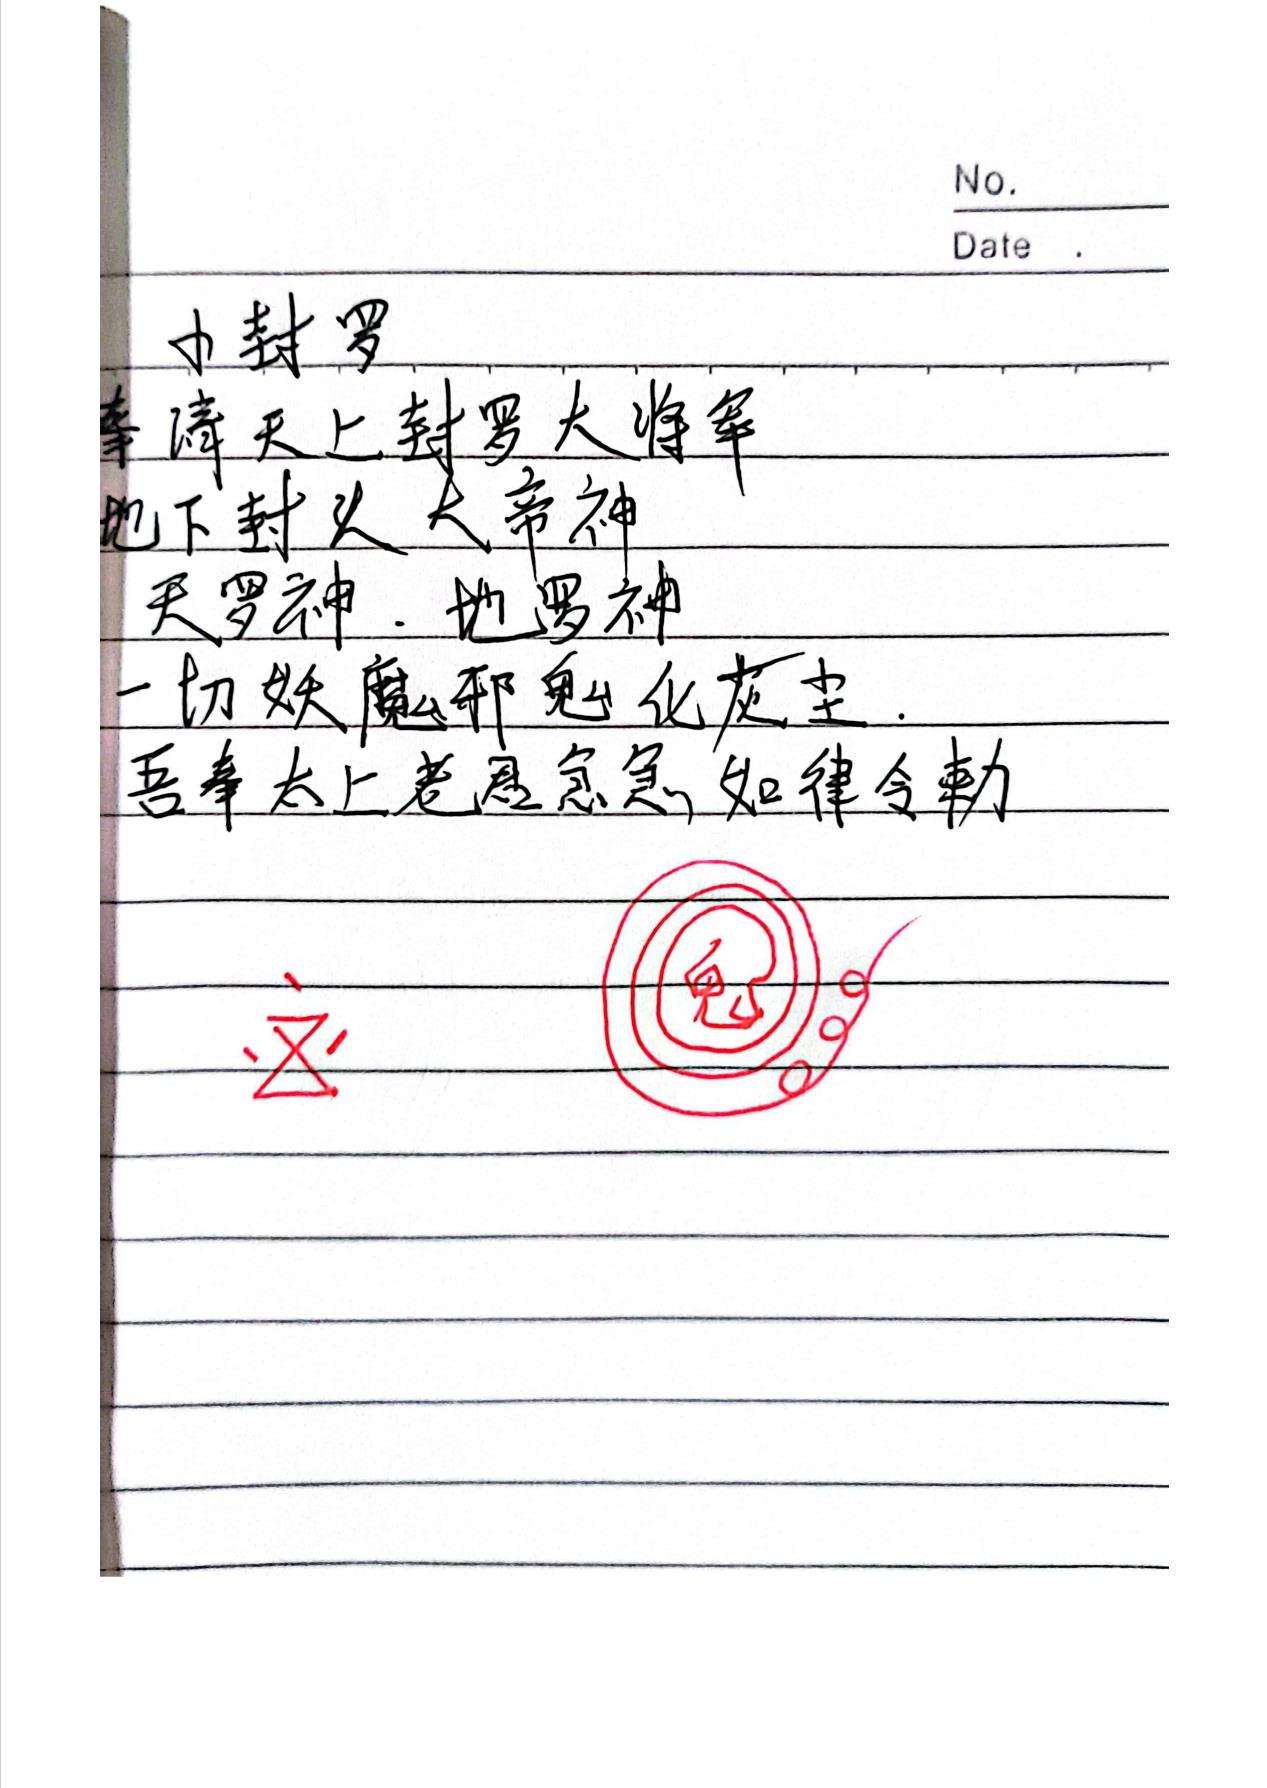 No.
Date .
小封罗
奉请天上封罗大将军
地下封头大帝神
天罗神.地罗神
一切妖魔邪鬼化灰尘.
吾奉太上老君急急如律令勅
鬼